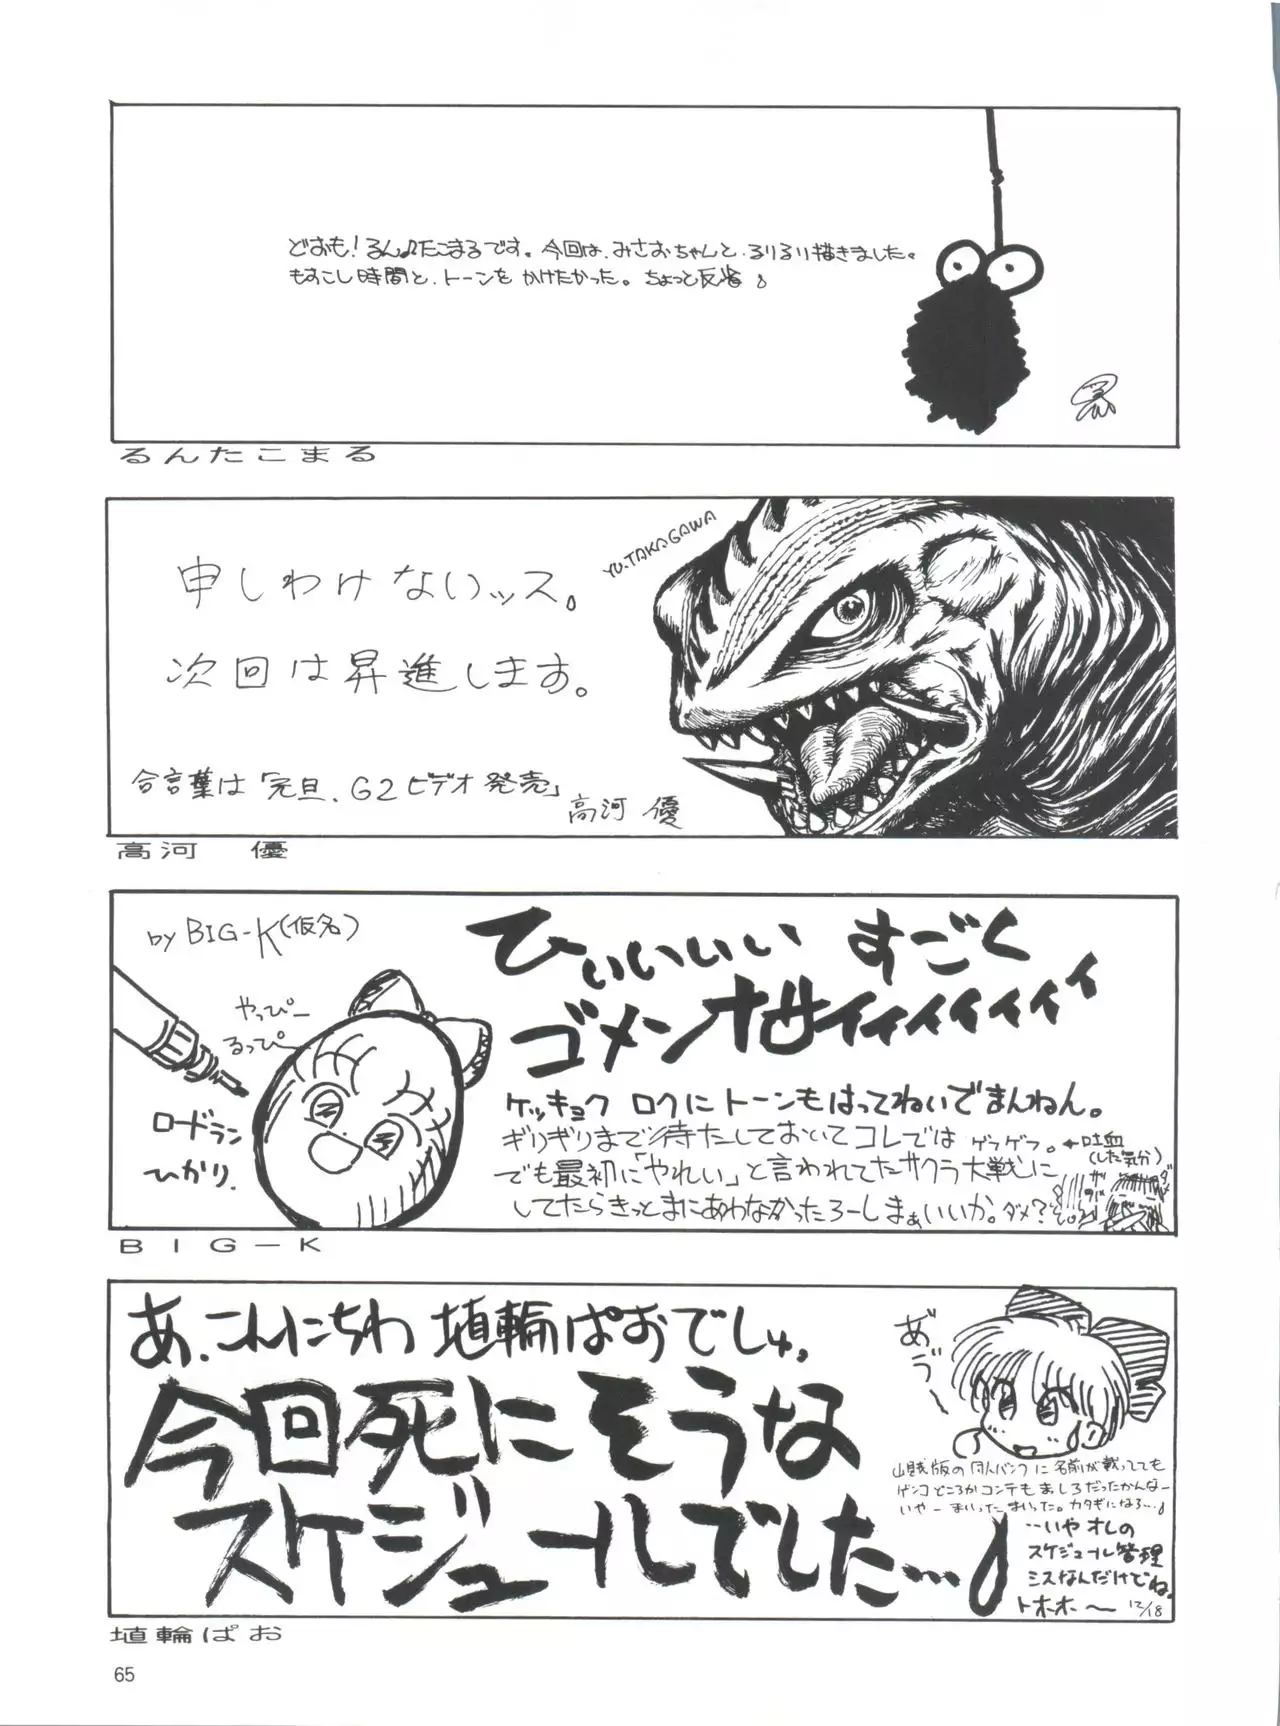 どおも！るん♪たこまるです。今回は、みさおちゃんと、るりるり描きました。
もすこし時間と、トーンを かけたかった。ちょっと反省
るんたこまる
YU.TAKAGAWA
申しわけないッス。
次回は昇進します。
合言葉は「元旦、G2ビデオ発売」
高河 優
高河 優
by BIG-K(仮名)
やっぴー
るっぴー
ロードラン
ひかり.
ひぃいいい すごく
ゴメンナサイィィィィィィ
ケッキョク ロクにトーンもはってねいでまんねん。
ギリギリまで待たしておいてコレでは ゲフゲフ。←吐血
(した気分)
でも最初に「やれい」と言われてたサクラ大戦に
してたらきっとまにあわなかったろーしまぁいいか。ダメ?
BIG-K
あ、こんにちわ 埴輪ぱおでしゅ,
今回死にそうな
スケジュールでした…
あ゛
う゛
山賊版の同人バンフに名前が載ってても
ゲンコどころかコンテもましろだったかんなー
いやー まいったまいった。カタギになろ…
…いや オレの
スケジュール管理
ミスなんだけどね。
トホホー〜 12/18
埴輪ぱお
65